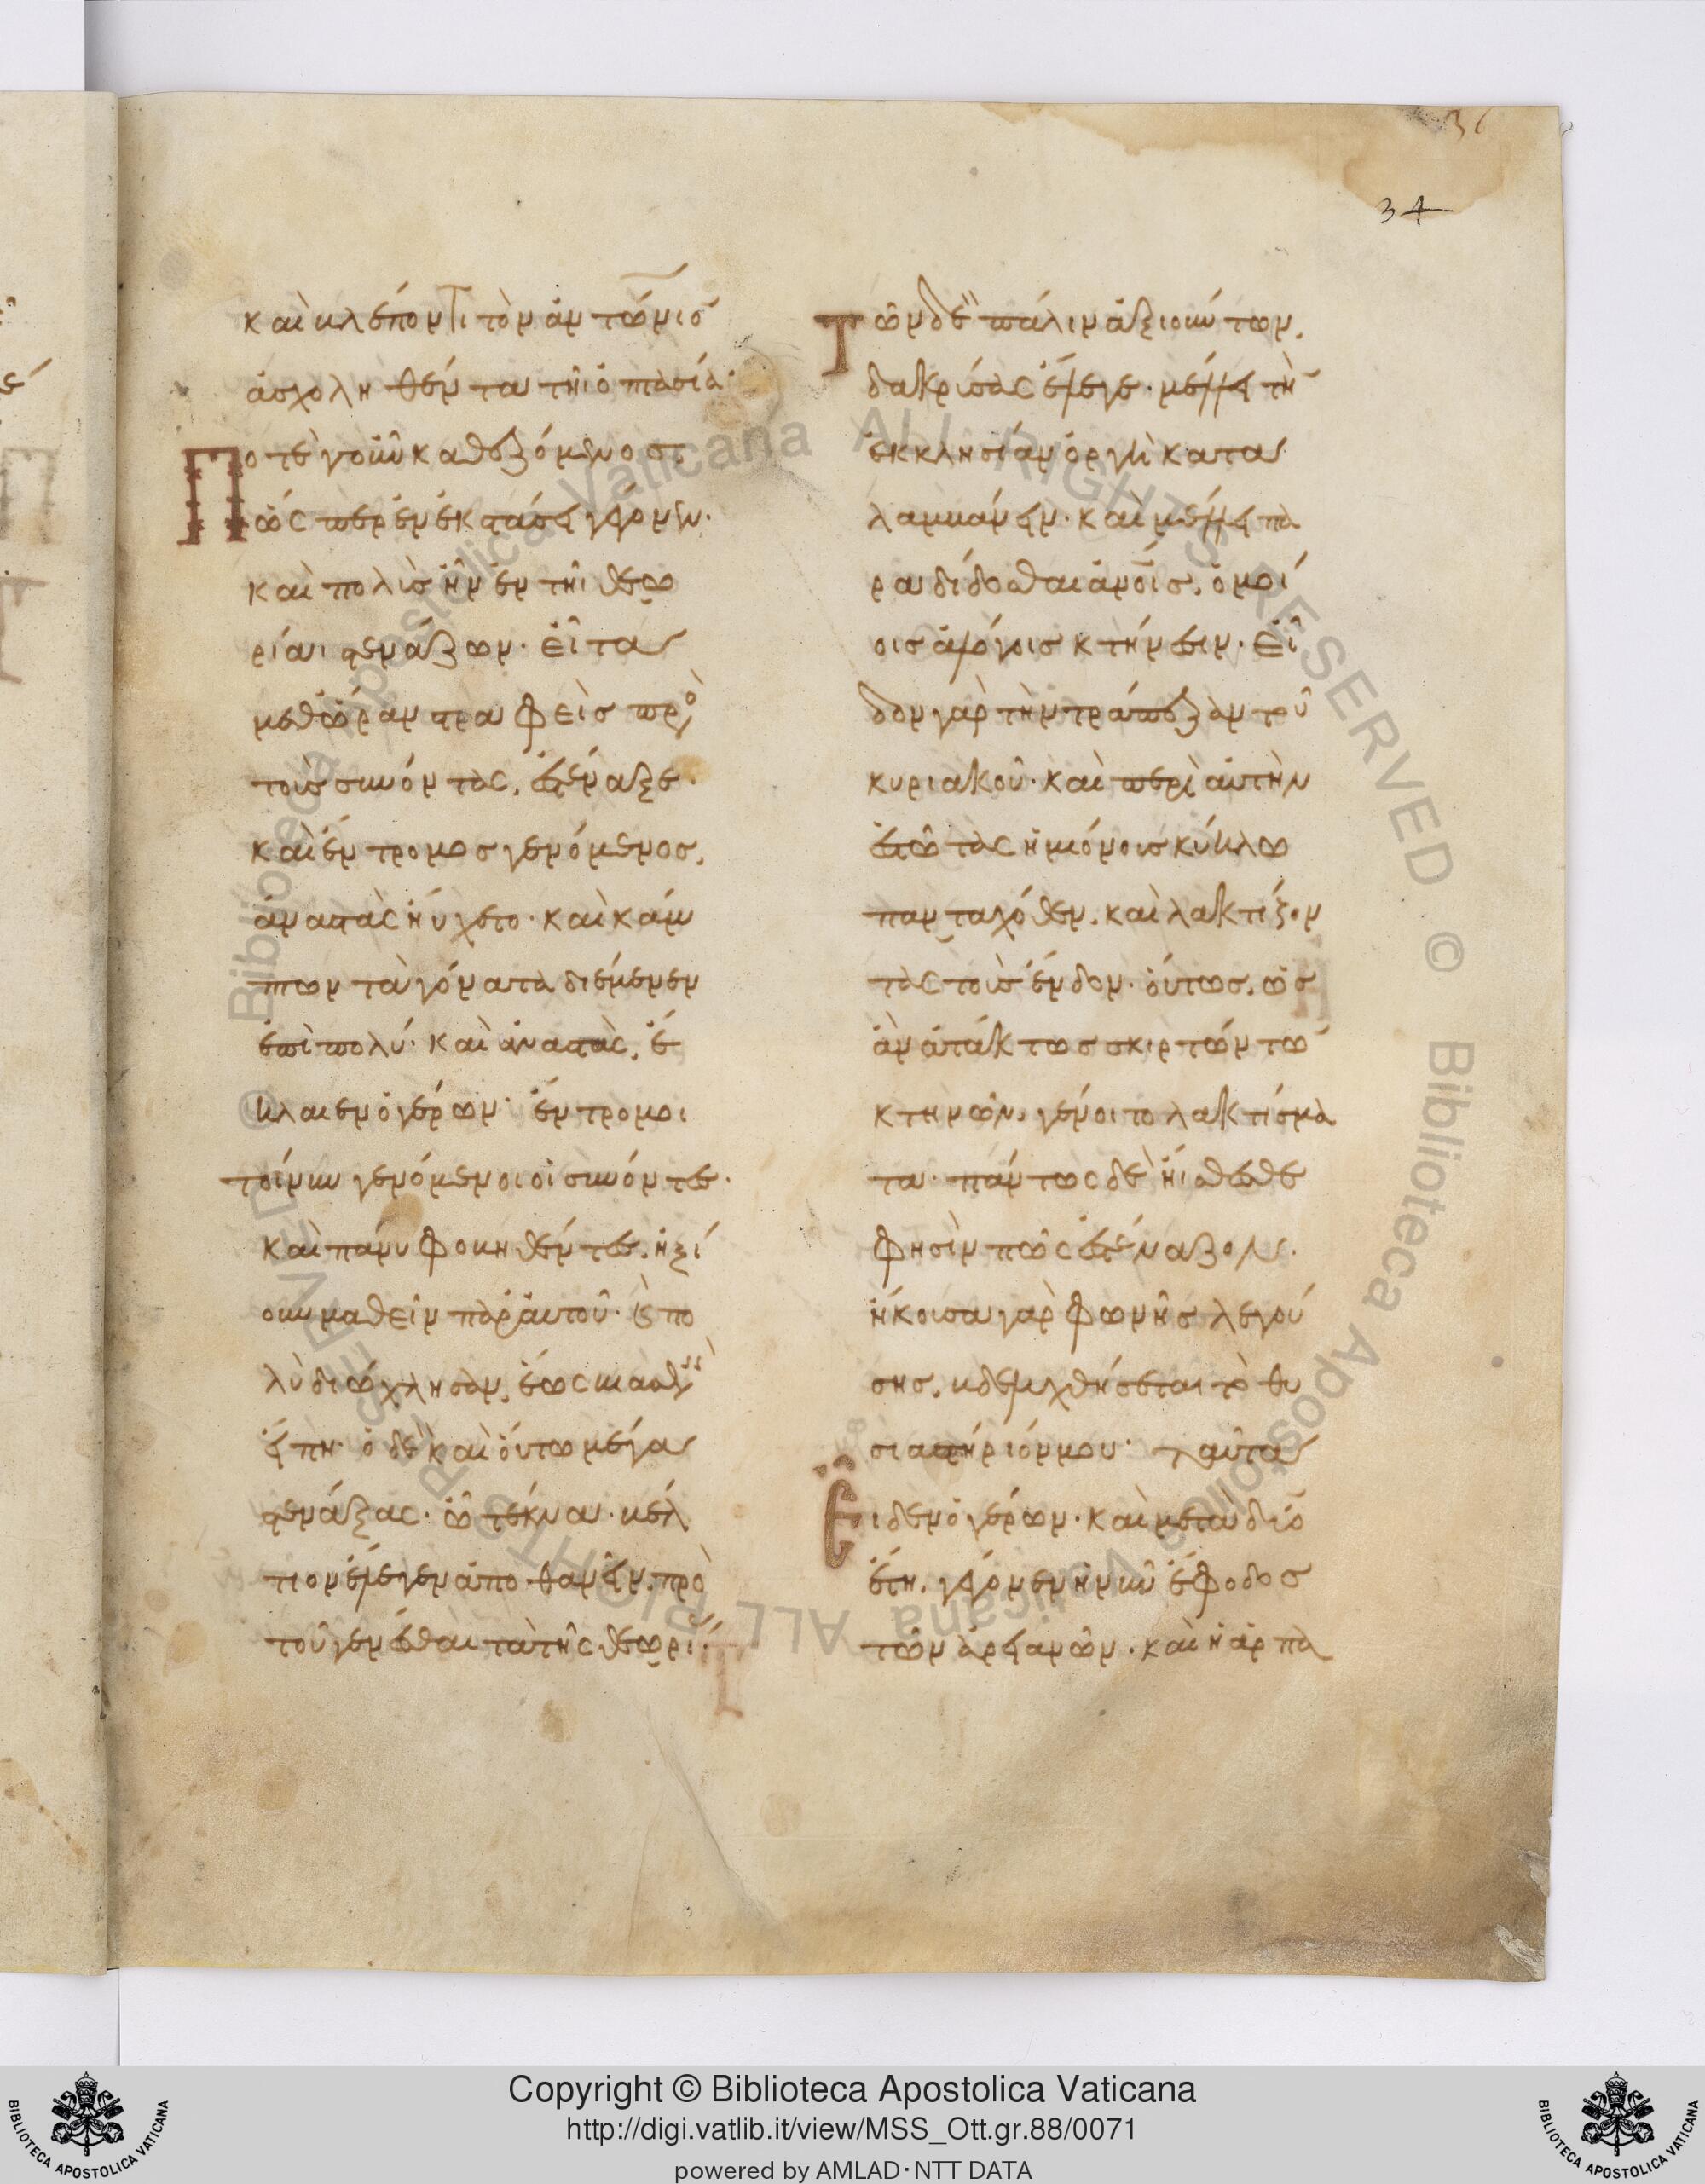 36
34
καὶ βλέποντι τὸν ἀντωνιο
ἀσχοληθέντα τῆι ὀπτασία·
Ποτὲ γοῦν καθεζόμενος.
ὡς περ ἐν ἐκστάσει γέγονεν·
καὶ πολὺς ἦν ἐν τῆι θεω
ρίαι στενάζων· εἶτα
μεθώραν στραφεὶς πρὸ
τοὺς συνόντας, ἐστέναξε·
καὶ ἔντρομος γενόμενος,
ἀναστὰς ηὔχετο· καὶ κάμ
πτων τὰ γόνατα διέμενεν
ἐπιπολύ· καὶ ἀναστὰς, ἔ
κλαιεν ὁ γέρων· ἔντρομοι
τοίνυν γενόμενοι οἱ συνόντες·
καὶ πάνυ φοβηθέντες, ἠξί
ουν μαθεῖν παρ' αὐτοῦ· καὶ πο
λὺ διώχλησαν, ἕως βιασθεὶς
εἴπη· ὁ δὲ καὶ οὕτω μέγα
στενάξας· ὦ τέκνα· βέλ
τιον ἔλεγεν ἀποθανεῖν, πρὸ
τοῦ γενέσθαι τὰ τῆς θεωρί
Τῶν δὲ πάλιν ἀξιούντων,
δακρύσας ἔλεγε· μέλλει τὴ
ἐκκλησίαν ὀργὴ κατα
λαμβάνειν· καὶ μέλλει πα
ραδίδοσθαι ἀνοις, ὁμοί
οις ἀλόγοις κτήνεσιν· εἶ
δον γὰρ τὴν τράπεζαν τοῦ
κυριακοῦ· καὶ περὶ αὐτὴν
ἑστῶτας ἡμιόνους κύκλω
πανταχόθεν, καὶ λακτίζον
τας τοὺς ἔνδον· οὕτως, ὡς
ἂν ἀτάκτως σκιρτώντω
κτηνῶν, γένοιτο λακτίσμα
τα· πάντως δὲ ἤισθεσθε
φησὶν πῶς ἐστέναζον·
ἤκουσα γὰρ φωνῆς λεγού
σης, βδελυχθήσεται τὸ θυ
σιαστήριόν μου· ταῦτα
Εἶδεν ὁ γέρων· καὶ μετὰ δύο
ἔτη, γέγονεν ἡ νῦν ἔφοδος
τῶν ἀρειανῶν· καὶ ἡ ἁρπα
Copyright © Biblioteca Apostolica Vaticana
http://digi.vatlib.it/view/MSS_Ott.gr.88/0071
powered by AMLAD·NTT DATA
BIBLIOTECA APOSTOLICA VATICANA
BIBLIOTECA APOSTOLICA VATICANA
© Biblioteca Apostolica Vaticana ALL RIGHTS RESERVED © Biblioteca Apostolica Vaticana ALL RIGHTS RESERVED